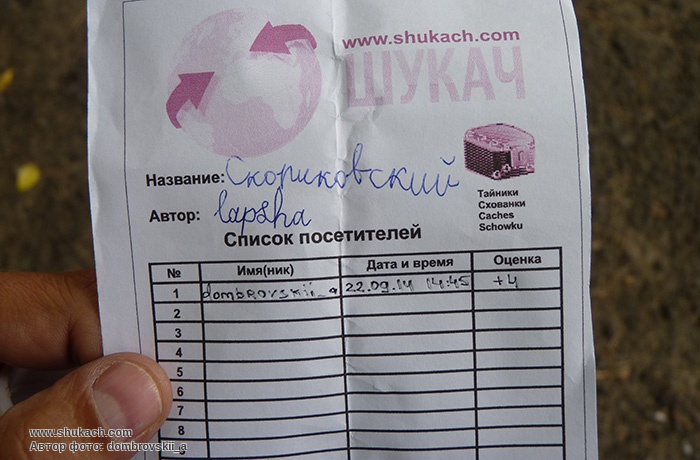 www.shukach.com
ШУКАЧ
Название: Скориковский
Тайники
Схованки
Caches
Schowku
Автор: lapsha
Список посетителей
№ Имя(ник) Дата и время Оценка
1 dombrovskii_a 22.09.14 14:45 +4
2
3
4
5
6
7
8
www.shukach.com
Автор фото: dombrovskii_a